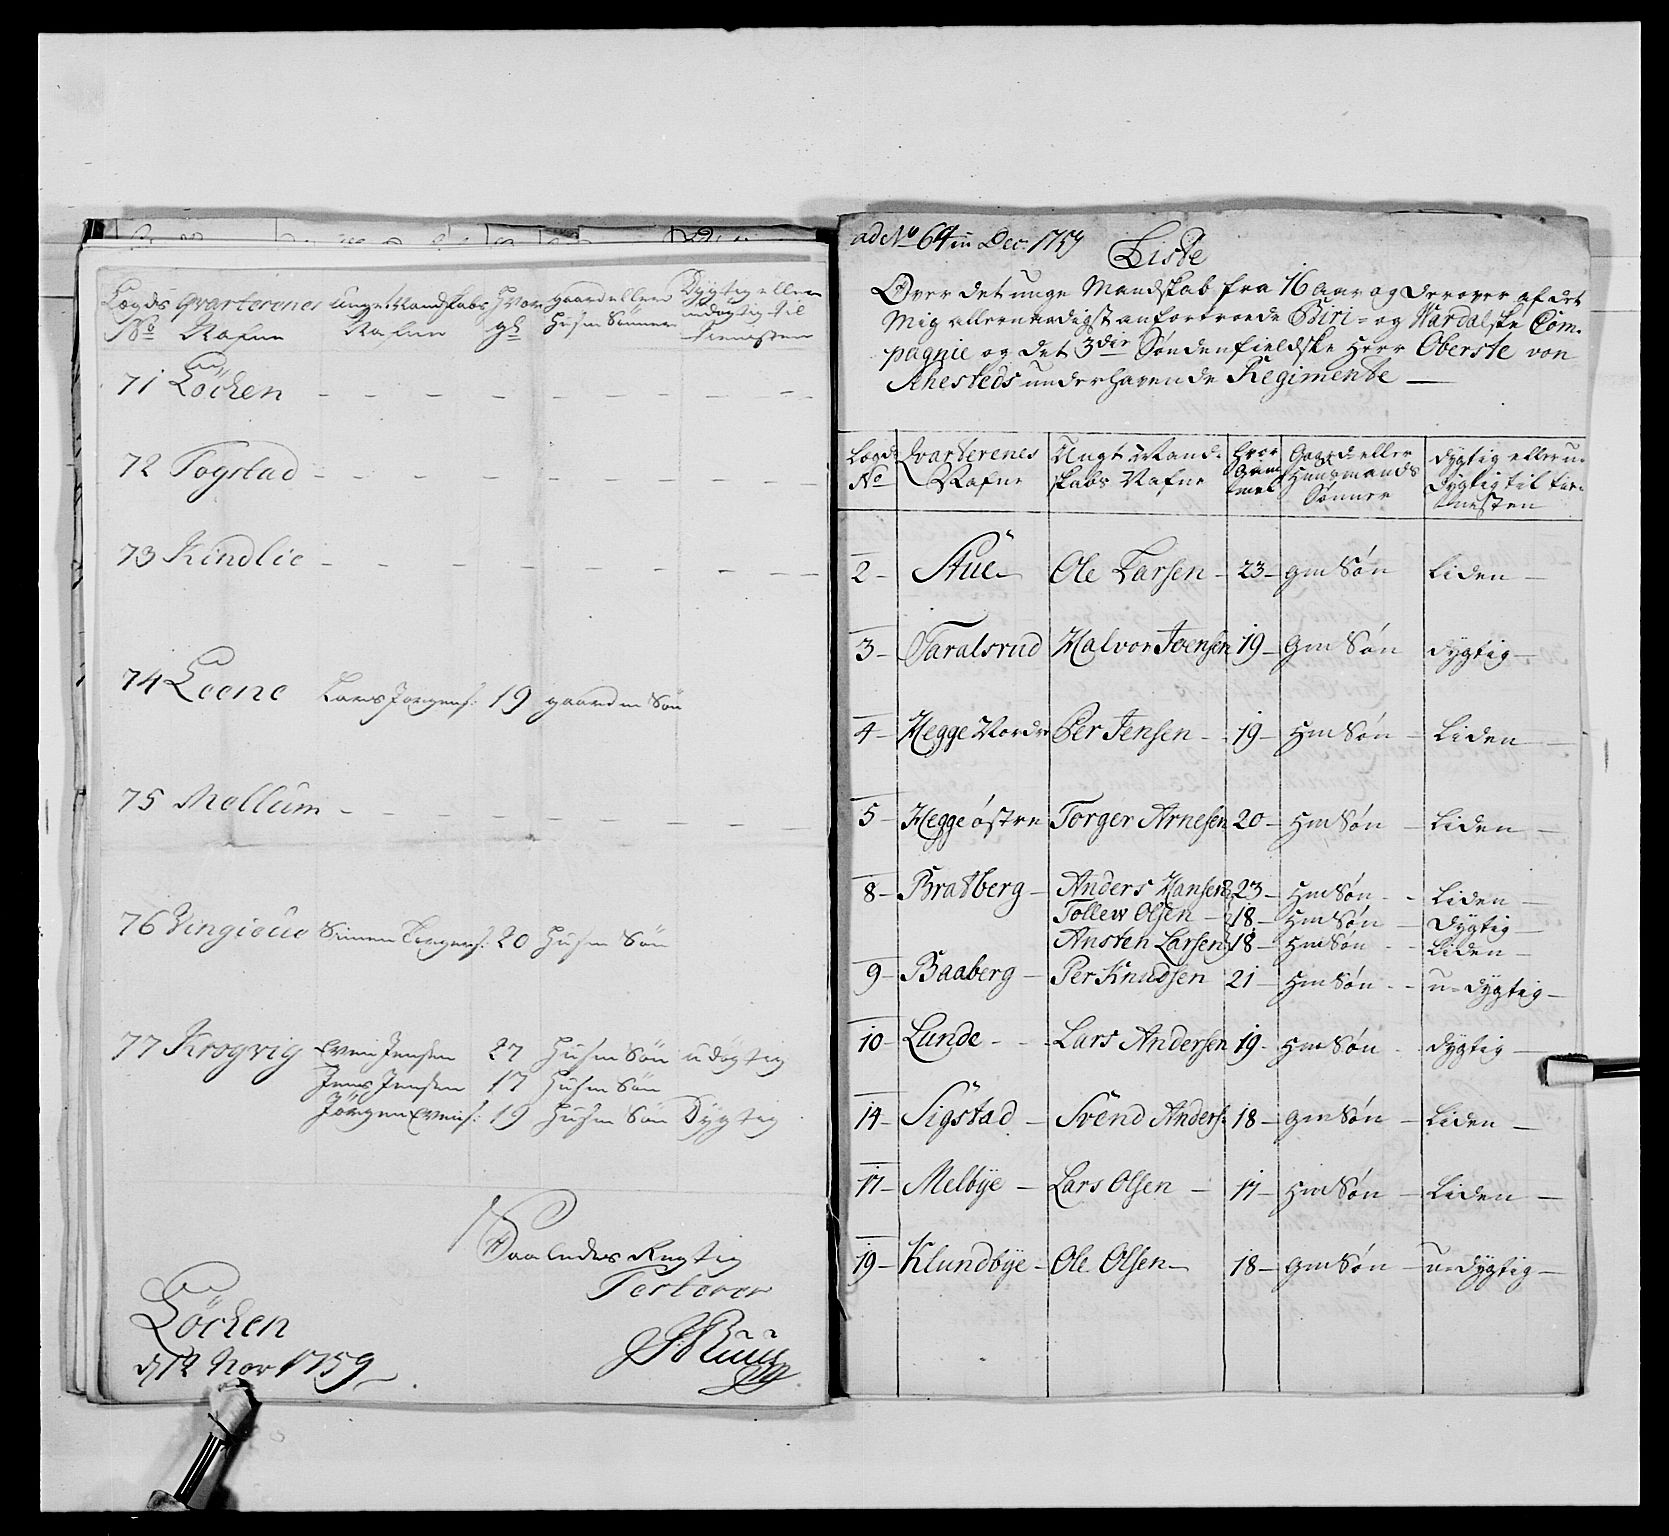 Lægdis No Qvarterenes Nafne unge Mandskabs Nafne Hvor gl gaard eller Husm Sønner Dygtig eller udygtig til tienesten
71 Löchen - - - - - - - - -
72 Togstad - - - - - - - - -
73 Kindlie - - - - - - - - -
74 Loene Lars Jorgens: 19 gaardm Søn
75 Mellum - - - - - - - - -
76 Simen 20 Husm Søn
77 Krogvig Even Jensen 27 Husm Søn udygtig
Jens Jensen 17 Husm Søn
Jörgen Evens: 19 Husm Søn Dygtig
Saaledes Rigtig
Testerer
Löchen
d 12 Nov 1759
ad No 64 in Dec. 1759
Liste
Over det unge Mandskab fra 16 aar og derover af det
Mig allernaadigst anfortroede Biri- og Wardalske Com-
pagnie og det 3die Søndenfieldske Herr Oberste von
Ahesteds underhavende Regimente —
Lægds No Qvarterenes Nafne Ungt Mand- skabs Nafne Hvor Gam mel Gaard- eller Huusmands Sønner dygtig eller u- dygtig til tie- nesten
2- Stue Ole Larsen - 23- gm Søn Liden —
3- Taralsrud Halvor Joensen 19- Gm Søn dygtig —
4- Hegge Nordre Per Jensen - 19- Hm Søn - Liden —
5- Hegge østre Torger Arnesen 20- Hm Søn - Liden —
8- Bratberg - Anders Hansen 23- Hm Søn - - Liden —
Tollew Olsen - 18- Hm Søn - Dygtig —
Ansten Larsen 18- Hm Søn - - Liden —
9- Baaberg - Per Knudsen 21- Hm Søn - - u-dygtig —
10- Lunde - - Lars Andersen 19- Hm Søn - dygtig —
14- Sigstad - Svend Anders: 18- Gm Søn - Liden —
17- Melbye - Lars Olsen - 17- Hm Søn - Liden —
19- Klundbye - Ole Olsen - 18- Gm Søn - u-dygtig —